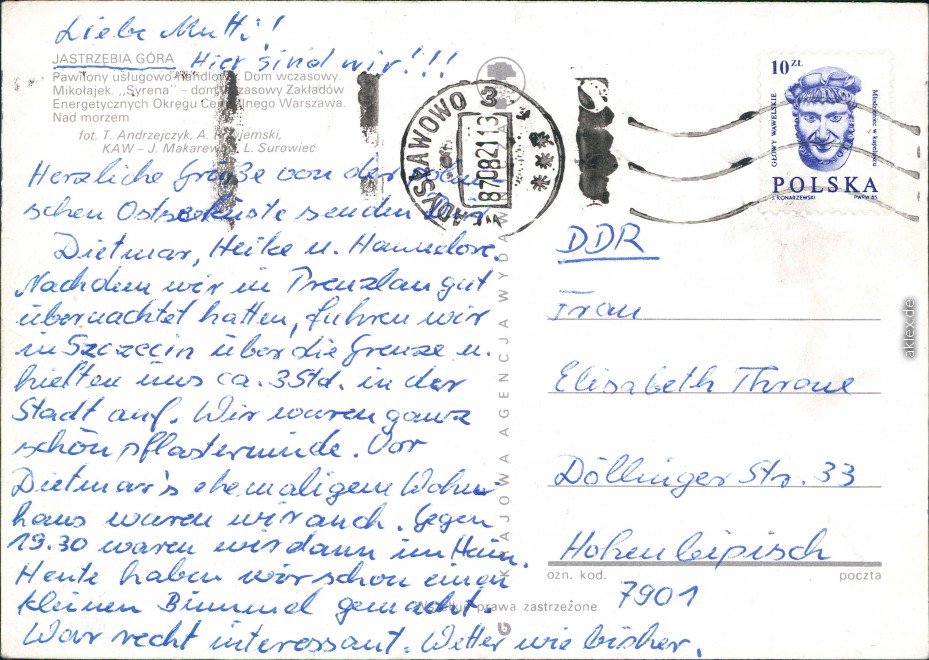 Liebe Mutti!
JASTRZĘBIA GÓRA Hier sind wir!!!
Pawilony usługowo-handlowe. Dom wczasowy.
Mikołajek. „Syrena” – dom wczasowy Zakładów
Energetycznych Okręgu Centralnego Warszawa.
Nad morzem
fot. T. Andrzejczyk, A.
KAW – J. Makarewicz, L. Surowiec
Herzliche Grüße von der polni-
schen Ostseeküste senden Dir
Dietmar, Heike u. Hannelore.
Nachdem wir in Prenzlau gut
übernachtet hatten, fuhren wir
in Szczecin über die Grenze u.
hielten uns ca. 3 Std. in der
Stadt auf. Wir waren ganz
schön pflastermüde. Vor
Dietmar's ehemaligem Wohn-
haus waren wir auch. Gegen
19.30 waren wir dann im Heim.
Heute haben wir schon einen
kleinen Bummel gemacht.
War recht interessant. Wetter wie bisher.
KRAJOWA AGENCJA WYDA
prawa zastrzeżone
WŁADYSŁAWOWO 3
87082113
10 ZŁ
GŁOWY WAWELSKIE
Młodzieniec w kapeluszu
POLSKA
J. KONARZEWSKI PWPW 85
DDR
Frau
Elisabeth Throne
Döllinger Str. 33
Hohenleipisch
ozn. kod. poczta
7901
aklex.de